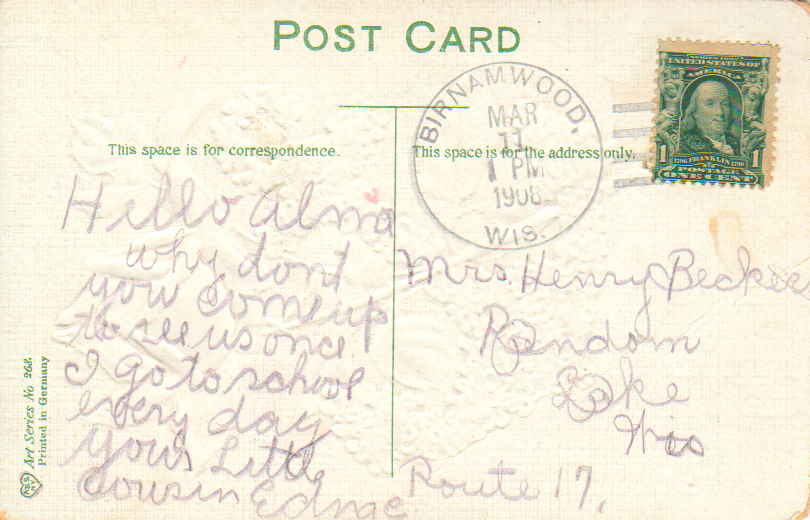 POST CARD
This space is for correspondence.
This space is for the address only.
BIRNAMWOOD.
MAR
11
1 PM
1908
WIS.
UNITED STATES OF
AMERICA
1 FRANKLIN 1
POSTAGE
ONE CENT
Hello Alma
why dont
you come up
to see us once
I go to school
every day
your Little
Cousin Ednae
Mrs. Henry Becker
Random
Lake
Wis
Route 17.
Art Series No 268.
Printed in Germany